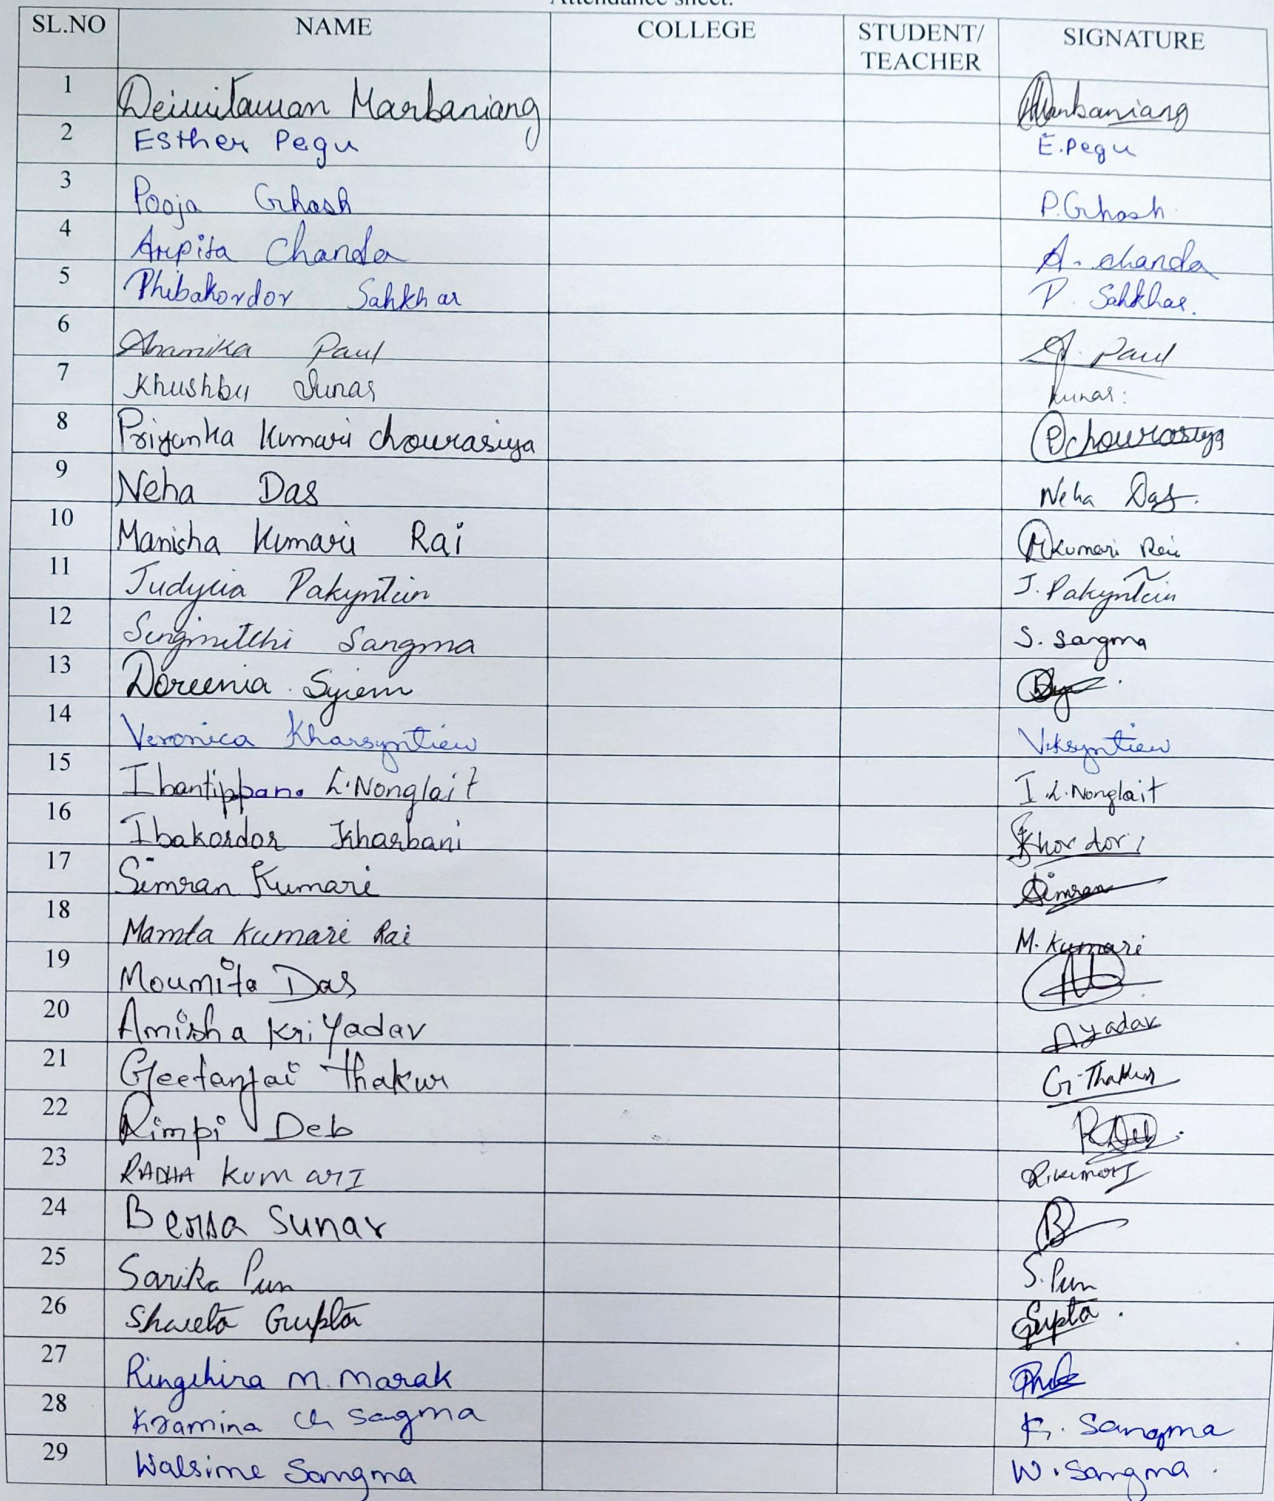 Attendance sheet.
SL.NO NAME COLLEGE STUDENT/ TEACHER SIGNATURE
1 Deimitawan Marbaniang Marbaniang
2 Esther Pegu E.Pegu
3 Pooja Ghosh P.Ghosh
4 Arpita Chanda A. chanda
5 Phibakordor Sahkhar P. Sahkhar.
6 Anamika Paul A. Paul
7 Khushbu Sunar
8 Priyanka Kumari chourasiya Pchourasiya
9 Neha Das Neha Das.
10 Manisha Kumari Rai MKumari Rai
11 Judycia Pakyntein J. Pakyntein
12 Sengmitchi Sangma S. Sangma
13 Doreenia Syiem
14 Veronica Kharsyntiew V.Ksyntiew
15 Ibantippano L.Nonglait I.L.Nonglait
16 Ibakordor Kharbani
17 Simran Kumari Simran
18 Mamta Kumari Rai M. Kumari
19 Moumita Das
20 Amisha Kri Yadav AYadav
21 Geetanjai Thakur G.Thakur
22 Rimpi Deb RDeb.
23 RADHA KumarI R.kumarI
24 Bersa Sunar B
25 Sarika Pun S.Pun
26 Shweta Gupta Gupta.
27 Ringchira M. Marak
28 Kramina Ch Sagma K. Sangma
29 Walsime Sangma W. Sangma.